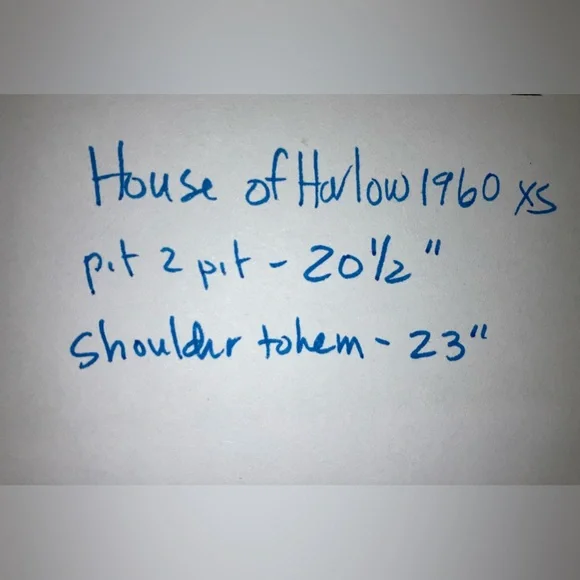 House of Harlow 1960 XS
pit 2 pit - 20 1/2"
Shoulder to hem - 23"